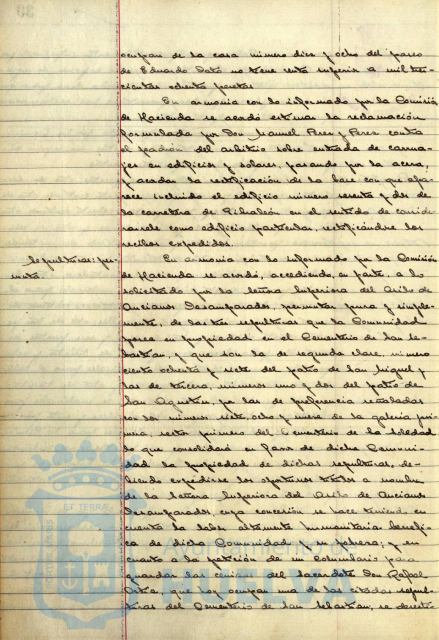 ocupan de la casa número diez y ocho del paseo
de Eduardo Dato no tiene renta superior a mil tres-
cientas ochenta pesetas
En armonía con lo informado por la Comisión
de Hacienda se acordó estimar la reclamación
formulada por Don Manuel Perez y Perez contra
el padrón del arbitrio sobre entrada de carrua-
jes en edificios y solares, pasando por la acera,
y acordar la rectificación de la base con que apa-
rece incluido el edificio número sesenta y dos de
la carretera de Gibraleón en el sentido de conside-
rarsele como edificio particular, rectificándose los
recibos expedidos.
Sepulturas: per-
muta.
En armonía con lo informado por la Comisión
de Hacienda se acordó, accediendo, en parte, a lo
solicitado por la Señora Superiora del Asilo de
Ancianos Desamparados, permutar pura y simple-
mente, de las tres sepulturas que la Comunidad
posee en propiedad en el Cementerio de San Se-
bastian, y que son la de segunda clase, número
ciento ochenta y siete del patio de San Miguel y
las de tercera, números uno y dos del patio de
San Agustín, por las de preferencia señaladas
con los números siete, ocho y nueve de la galería pri-
mera, sector primero del Cementerio de la Soledad
lo que consolidará en favor de dicha Comuni-
dad la propiedad de dichas sepulturas, de-
biendo expedirse los oportunos títulos a nombre
de la Señora Superiora del Asilo de Ancianos
Desamparados, cuya concesión se hace teniendo en
cuenta la labor altamente humanitaria benéfi-
ca de dicha Comunidad y su pobreza; y en
cuanto a la petición de un columbario para
guardar las cenizas del sacerdote Don Rafael
que hoy ocupan una de las citadas sepul-
turas del Cementerio de San Sebastian, se